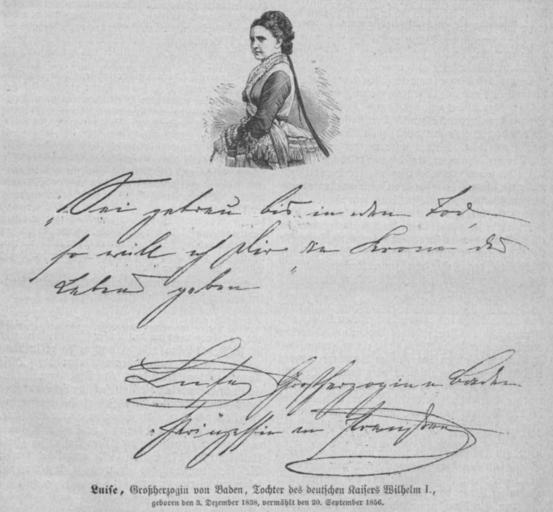 „Sei getreu bis in den Tod
so will ich Dir die Krone des
Lebens geben“
Luise Großherzogin v Baden
Prinzessin von Preußen
Luise, Großherzogin von Baden, Tochter des deutschen Kaisers Wilhelm I.,
geboren den 3. Dezember 1838, vermählt den 20. September 1856.